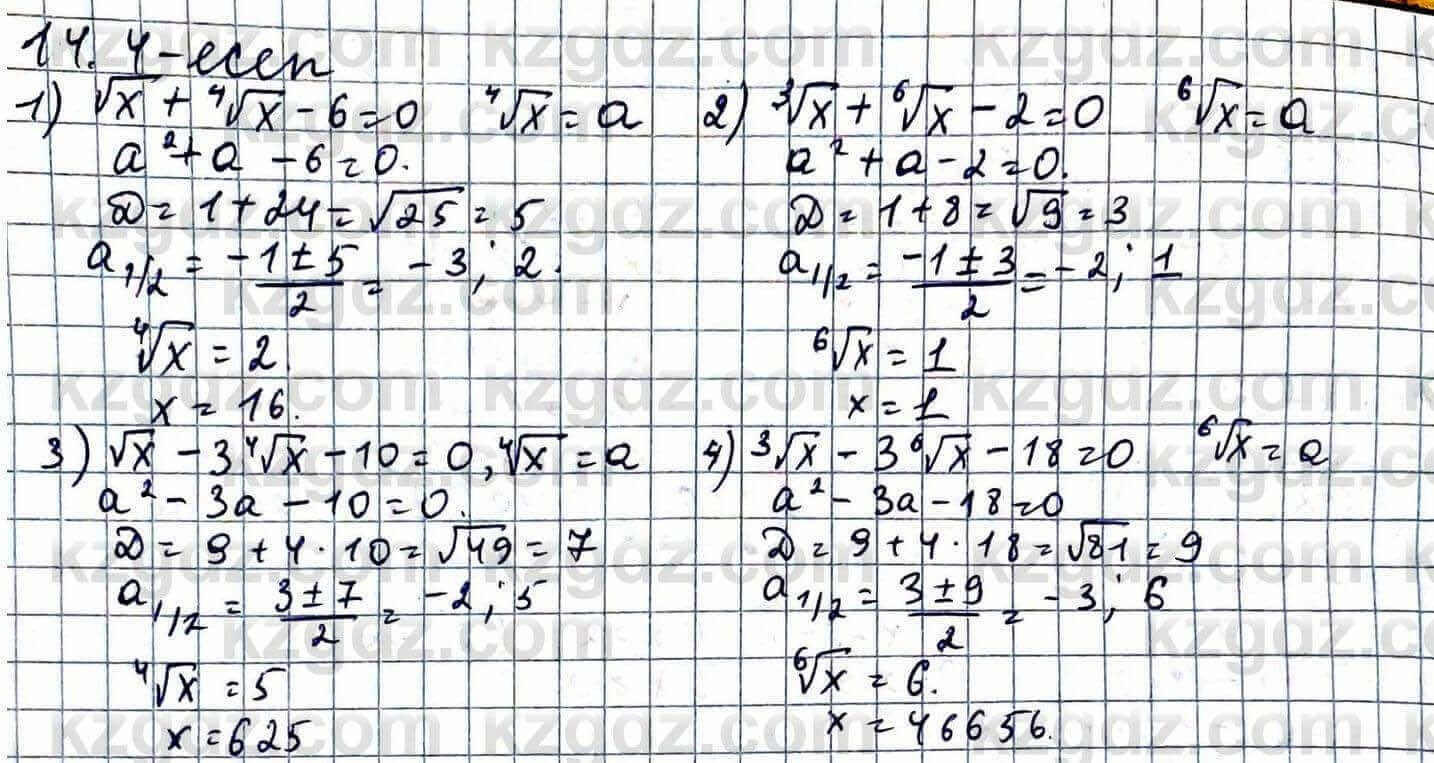 14.4-есеп
1) √x + ⁴√x - 6 = 0 ⁴√x = a
a² + a - 6 = 0.
D = 1 + 24 = √25 = 5
a₁/₂ = (-1 ± 5)/2 = -3; 2.
⁴√x = 2.
x = 16.
2) ³√x + ⁶√x - 2 = 0 ⁶√x = a
a² + a - 2 = 0.
D = 1 + 8 = √9 = 3
a₁/₂ = (-1 ± 3)/2 = -2; 1
⁶√x = 1
x = 1
3) √x - 3⁴√x - 10 = 0, ⁴√x = a
a² - 3a - 10 = 0.
D = 9 + 4 · 10 = √49 = 7
a₁/₂ = (3 ± 7)/2 = -2; 5
⁴√x = 5
x = 625
4) ³√x - 3⁶√x - 18 = 0 ⁶√x = a
a² - 3a - 18 = 0
D = 9 + 4 · 18 = √81 = 9
a₁/₂ = (3 ± 9)/2 = -3; 6
⁶√x = 6.
x = 46656.
kzgdz.com